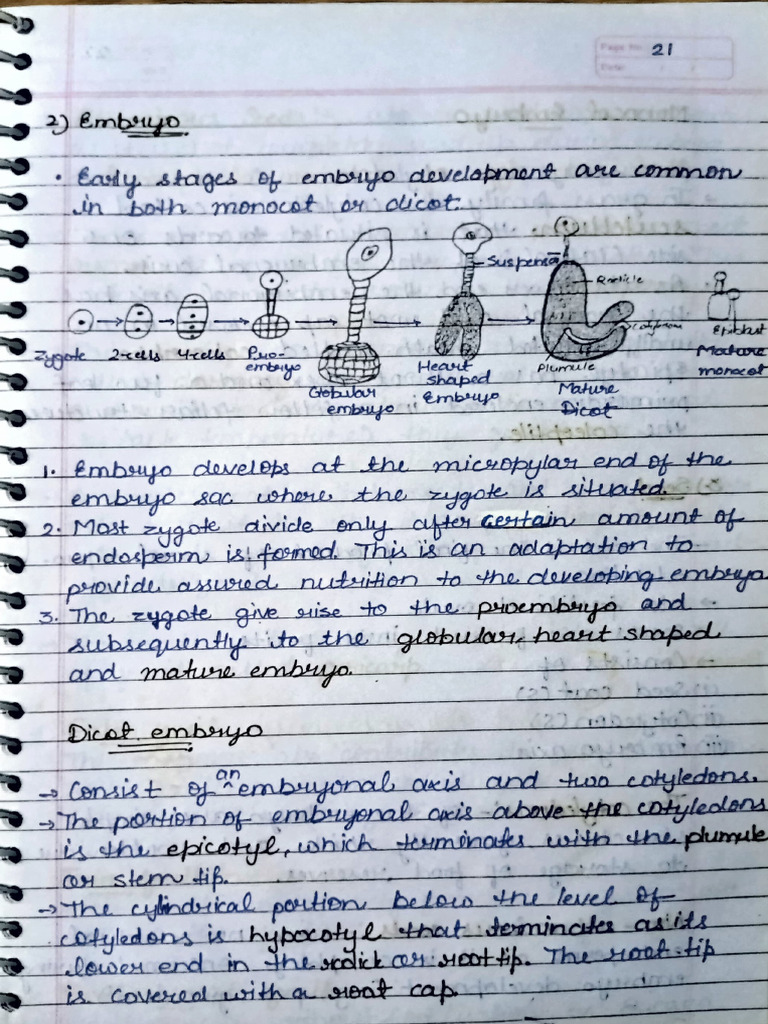 Page No. 21
Date:
2) Embryo
• Early stages of embryo development are common
in both monocot or dicot.
Suspensor
Radicle
Zygote 2-cells 4-cells Pro-
embryo
Globular
embryo
Heart
shaped
Embryo
Plumule
Mature
Dicot
Mature
monocot
1. Embryo develops at the micropylar end of the
embryo sac where the zygote is situated.
2. Most zygote divide only after certain amount of
endosperm is formed. This is an adaptation to
provide assured nutrition to the developing embryo.
3. The zygote give rise to the proembryo and
subsequently to the globular, heart shaped
and mature embryo.
Dicot embryo
→ Consist of an embryonal axis and two cotyledons.
→ The portion of embryonal axis above the cotyledons
is the epicotyl, which terminates with the plumule
or stem tip.
→ The cylindrical portion below the level of
cotyledons is hypocotyl that terminates as its
lower end in the radicle or root tip. The root tip
is covered with a root cap.